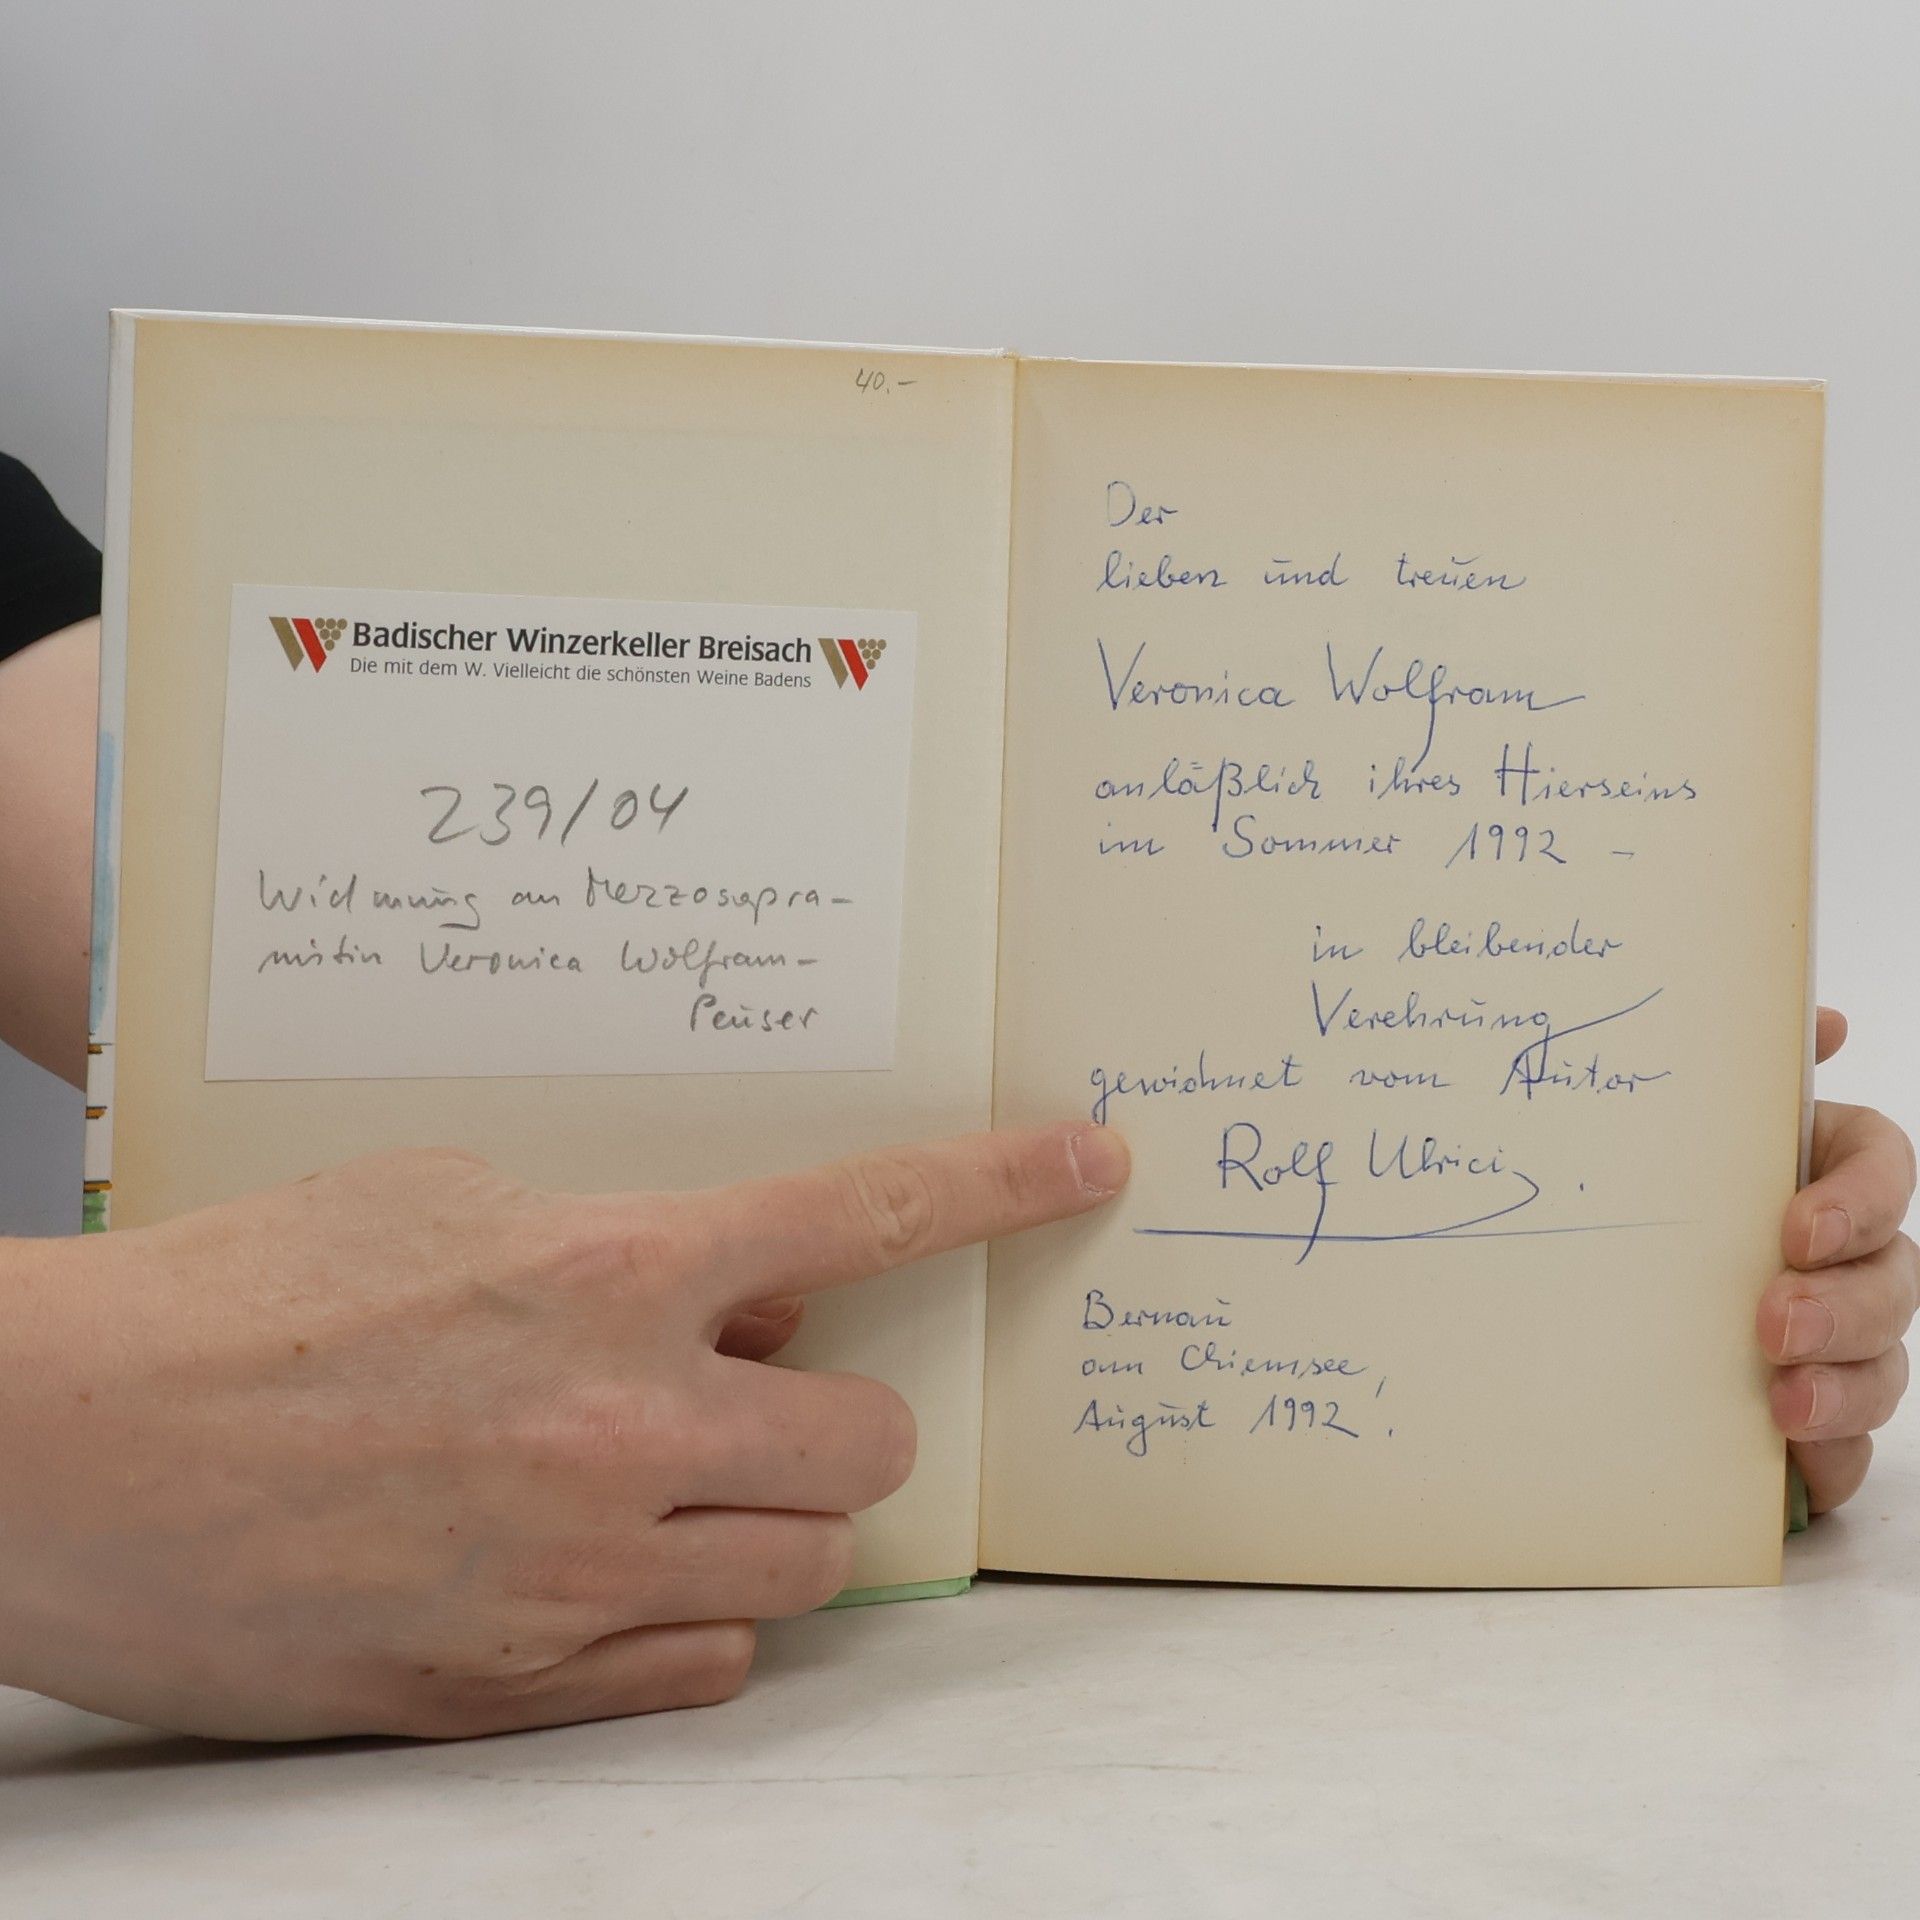 40.-
Badischer Winzerkeller Breisach
Die mit dem W. Vielleicht die schönsten Weine Badens
239/04
Widmung an Mezzosopra-
nistin Veronica Wolfram-
Peuser
Der
lieben und treuen
Veronica Wolfram
anläßlich ihres Hierseins
im Sommer 1992 –
in bleibender
Verehrung
gewidmet vom Autor
Rolf Ulrici.
Bernau
am Chiemsee,
August 1992.